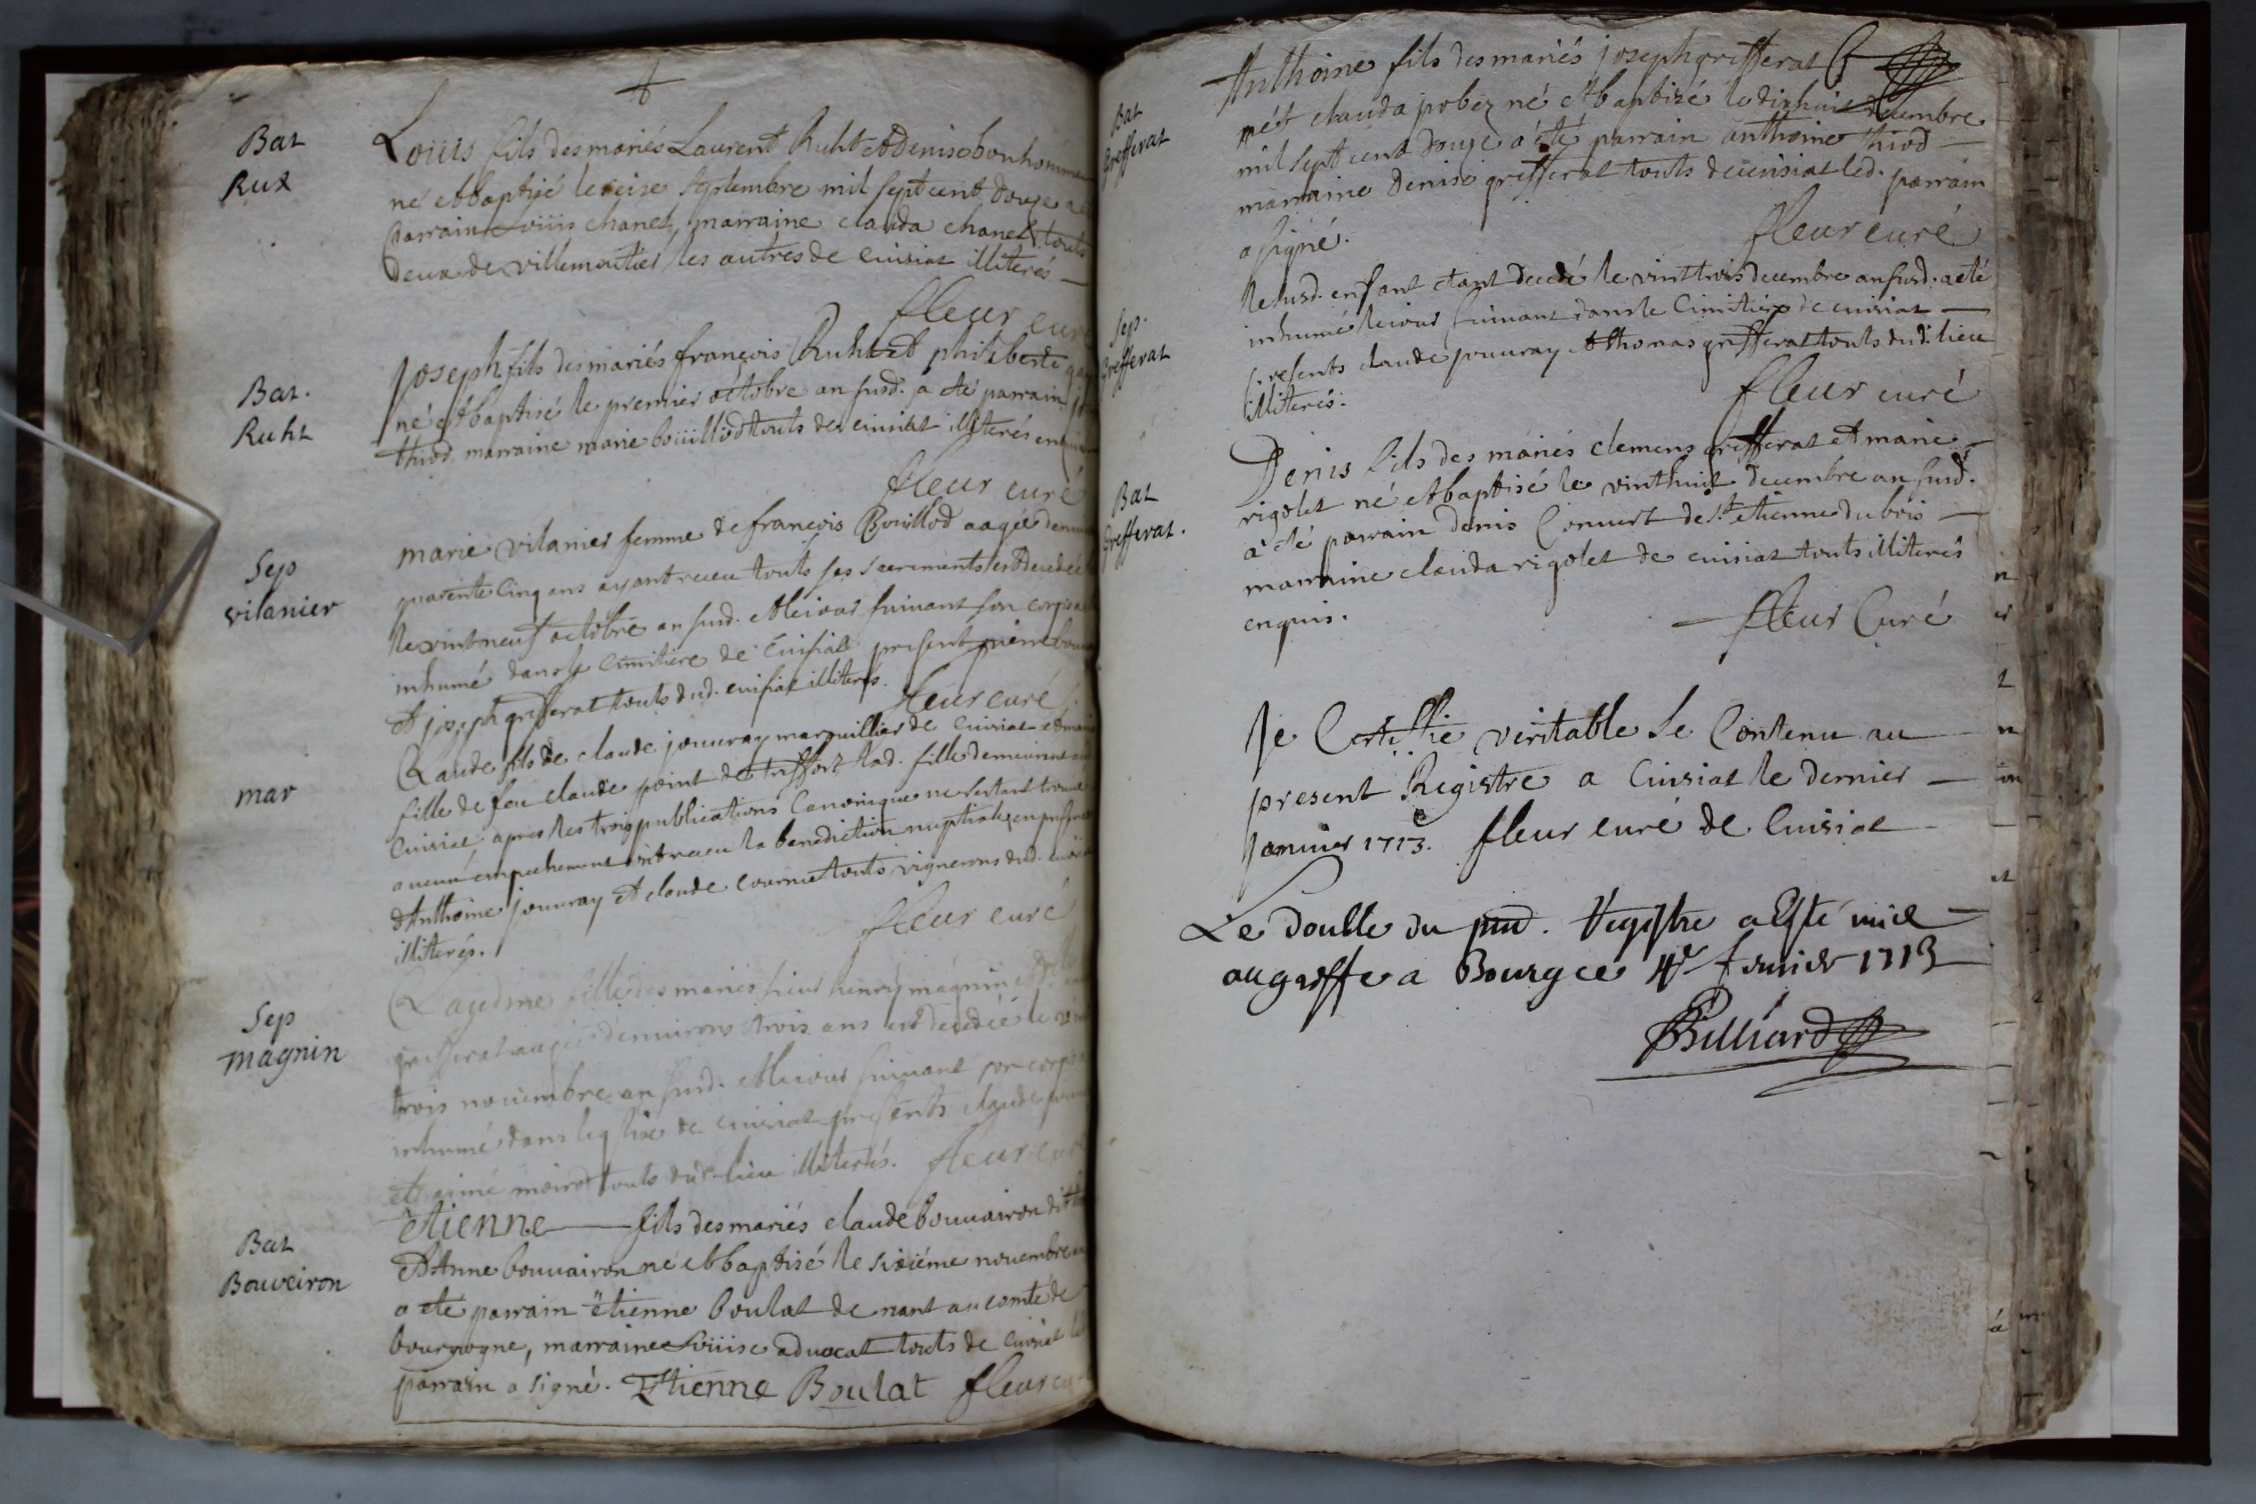 Bat
Rux
Louis fils des mariés Laurent Ruht et Denise bonhomme
né et baptisé le seise septembre mil sept cent douze a
parrain Louiis chanel, marraine clauda chanel touts
deux de villemoutier les autres de cuisiat illiterés
fleur curé
Bat.
Ruht
Joseph fils des mariés françois Ruht et philiberte
né et baptisé le premier octobre an susd. a eté parrain
thiod marraine marie boüillod touts de cuisiat illiterés
fleur curé
Sep
vilanier
marie vilanier femme de françois Bouillod aagée
quarente cinq ans ayant receu touts ses sacrements est decedée
le vint neuf octobre an susd. et le iour suivant son corps
inhumé dans le cimitiere de cuisiat present pierre
et joseph grefferat touts dud. cuisiat illiterés.
fleur curé
mar
Claude fils de claude jouuray marguillier de cuisiat et
fille de feu claude point de treffort lad. fille demeurant
cuisiat apres les trois publications Canonique ne s'estant trouvé
aucun empechement ont receu la benediction nuptiale en presence
d'Anthoine jouuray et claude cournut touts vignerons dud.
illiterés.
fleur curé
Sep
magnin
Claudine fille des mariés sieur henry magnin et
grefferat aagée d'enuirons trois ans est decedée le
trois nouembre an susd. et le iour suiuant son corps
inhumé dans leglise de cuisiat presents claude
et aimé moiret touts dud. lieu illiterés. fleur curé
Bat
Bouveiron
etienne fils des mariés claude bouuairon dit
et Anne bouuairon né et baptisé le sixiéme nouembre
a eté parrain etienne boulat de nant au comté de
bourgogne, marraine Louiise aduocat touts de cuisiat
parrain a signé. Etienne Boulat fleur
Bat
grefferat
Anthoine fils des mariés joseph grefferat
et clauda pobez né et baptizé le dixhuit decembre
mil sept cent douze a eté parrain anthoine thiod
marraine Denise grefferat touts de cuisiat led. parrain
a signé.
fleur curé
Sep.
grefferat
le susd. enfant etant decedé le vint trois decembre an susd. a eté
inhumé le iour suiuant dans le Cimitiere de cuisiat
presents claude jouuray et thomas grefferat touts dud. lieu
illiterés.
fleur curé
Bat
grefferat.
Denis fils des mariés clemens grefferat et marie
rigolet né et baptisé le vint huit decembre an susd.
a eté parrain denis Conuert de St. etienne du bois
marraine clauda rigolet de cuisiat touts illiterés
enquis.
fleur Curé
Je Certiffie veritable le Contenu au
present Registre a Cuisiat le dernier
januier 1713. fleur curé de Cuisiat
Le double du pnt. Registre a Esté mis
au greffe a Bourg ce 4e. feurier 1713
Billiard